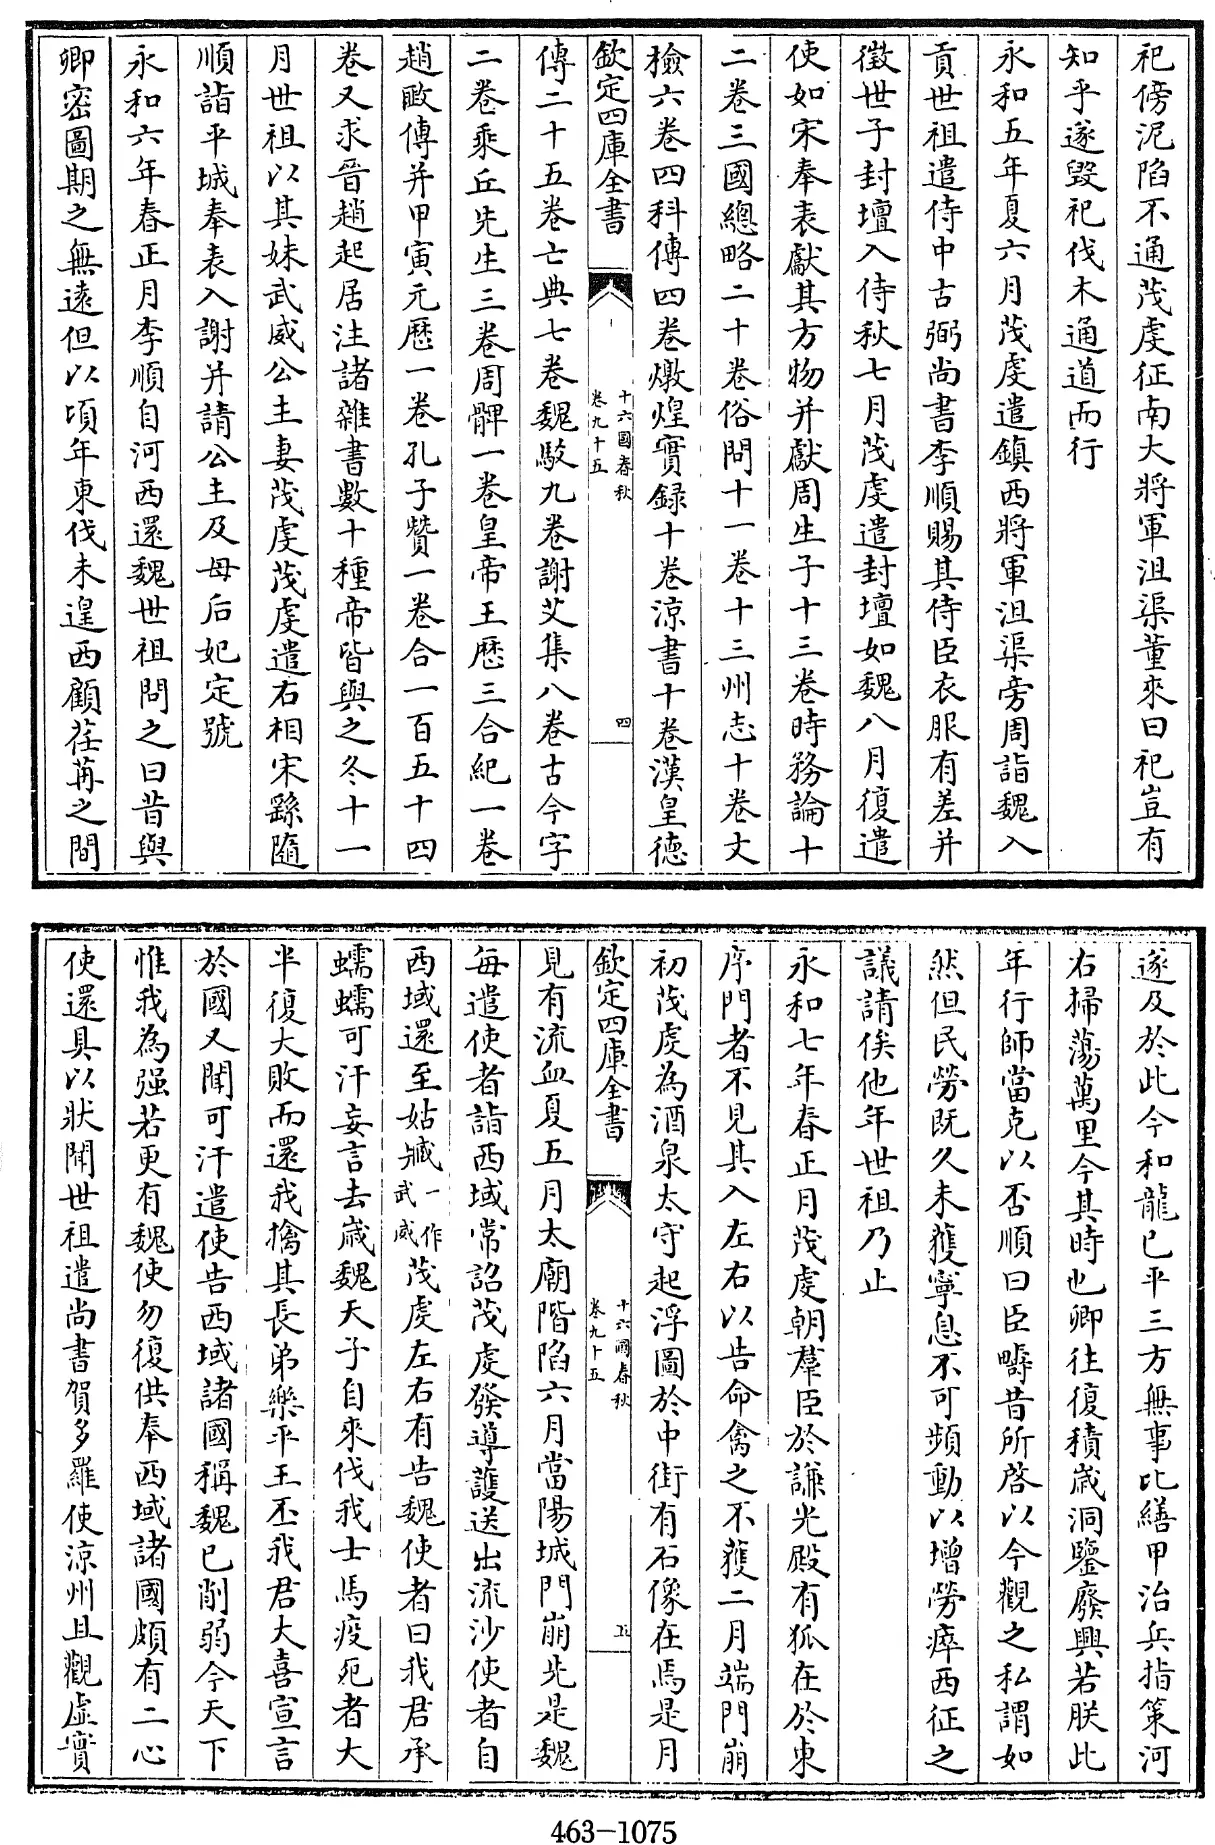 祀傍泥陷不通茂虔征南大將軍沮渠董來曰祀豈有
知乎遂毁祀伐木通道而行
永和五年夏六月茂虔遣鎮西將軍沮渠旁周詣魏入
貢世祖遣侍中古弼尚書李順賜其侍臣衣服有差并
徵世子封壇入侍秋七月茂虔遣封壇如魏八月復遣
使如宋奉表獻其方物并獻周生子十三卷時務論十
二卷三國總略二十卷俗問十一卷十三州志十卷文
檢六卷四科傳四卷燉煌實録十卷涼書十卷漢皇德
欽定四庫全書
十六國春秋
卷九十五
四
傳二十五卷亡典七卷魏駮九卷謝艾集八卷古今字
二卷乘丘先生三卷周髀一卷皇帝王歷三合紀一卷
趙𢾺傳并甲寅元歷一卷孔子贊一卷合一百五十四
卷又求晉趙起居注諸雜書數十種帝皆與之冬十一
月世祖以其妹武威公主妻茂虔茂虔遣右相宋繇隨
順詣平城奉表入謝并請公主及母后妃定號
永和六年春正月李順自河西還魏世祖問之曰昔與
卿密圖期之無遠但以頃年東伐未遑西顧荏苒之間
遂及於此今和龍已平三方無事比繕甲治兵指策河
右掃蕩萬里今其時也卿往復積歲洞鑒廢興若朕此
年行師當克以否順曰臣疇昔所啓以今觀之私謂如
然但民勞既久未獲寧息不可頻動以增勞瘁西征之
議請俟他年世祖乃止
永和七年春正月茂虔朝羣臣於謙光殿有狐在於東
序門者不見其入左右以告命禽之不獲二月端門崩
初茂虔為酒泉太守起浮圖於中街有石像在焉是月
欽定四庫全書
十六國春秋
卷九十五
五
見有流血夏五月太廟階陷六月當陽城門崩先是魏
每遣使者詣西域常詔茂虔發導護送出流沙使者自
西域還至姑臧一作武威茂虔左右有告魏使者曰我君承
蠕蠕可汗妄言去歲魏天子自來伐我士馬疫死者大
半復大敗而還我擒其長弟樂平王丕我君大喜宣言
於國又聞可汗遣使告西域諸國稱魏已削弱今天下
惟我為强若更有魏使勿復供奉西域諸國頗有二心
使還具以狀聞世祖遣尚書賀多羅使涼州且觀虚實
463-1075